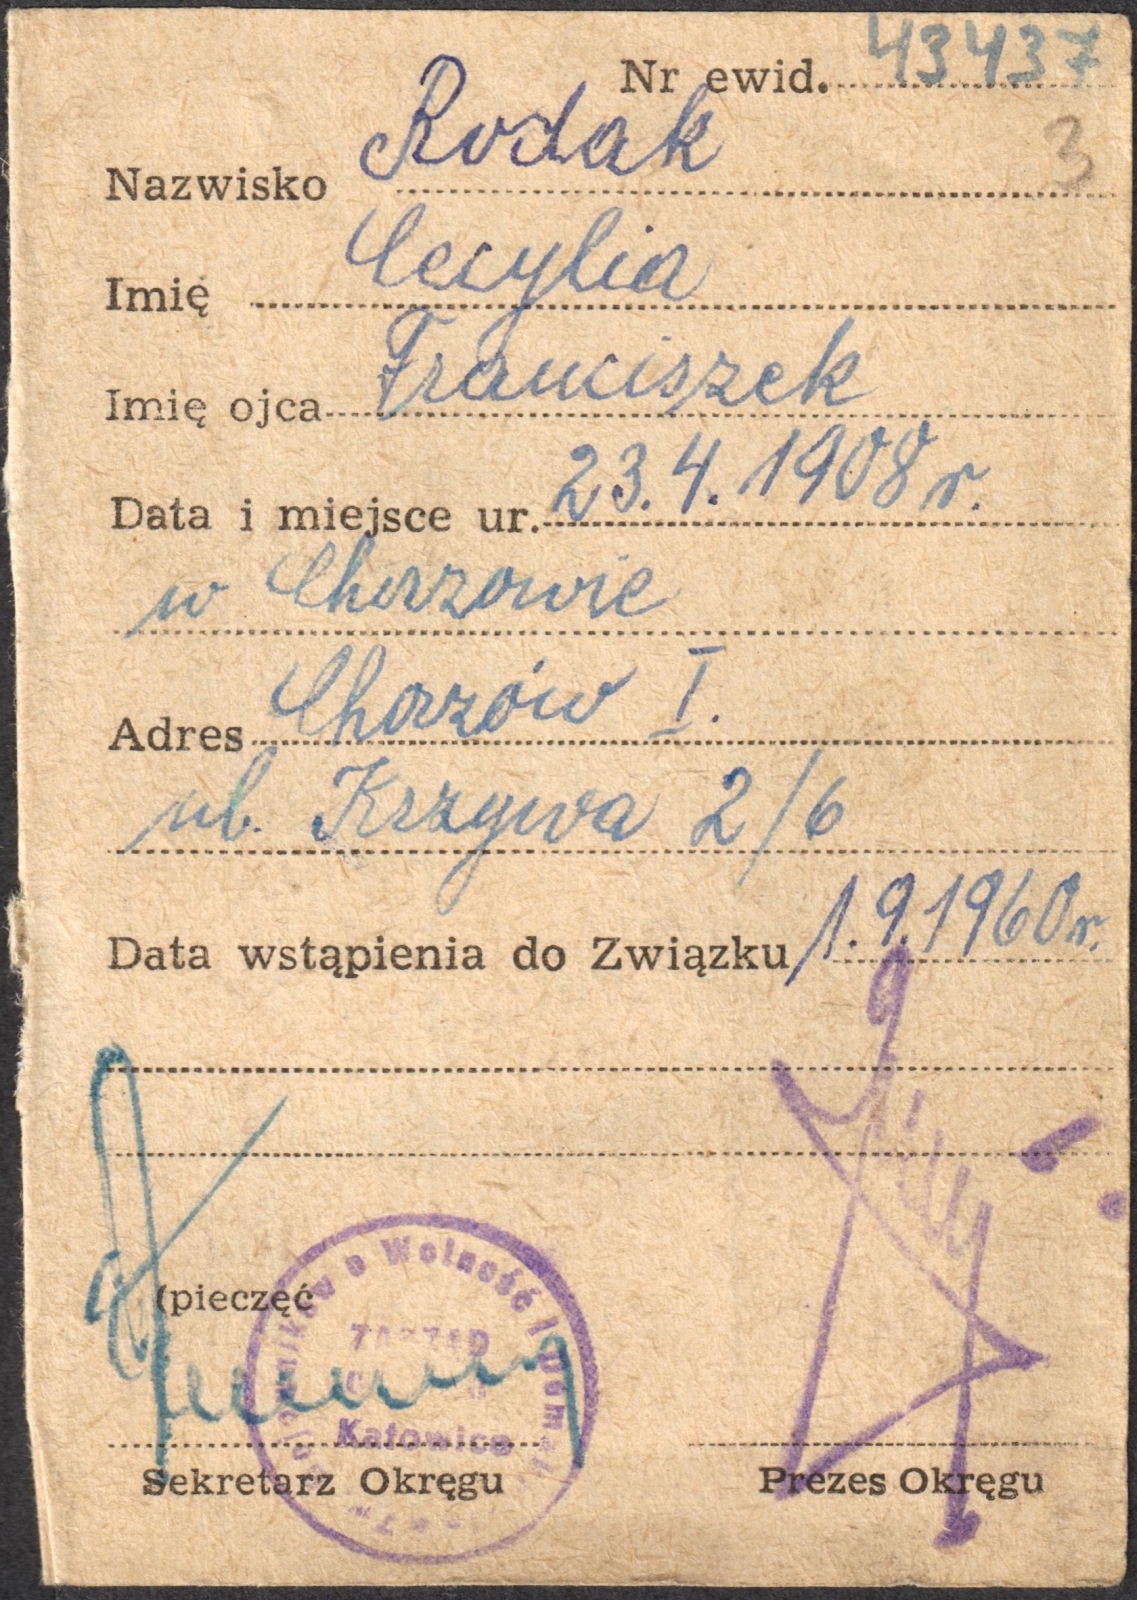 Nr ewid. 43437
3
Nazwisko Rodak
Imię Cecylia
Imię ojca Franciszek
Data i miejsce ur. 23.4.1908 r.
w Chorzowie
Adres Chorzów I.
ul. Krzywa 2/6
Data wstąpienia do Związku 1.9.1960 r.
(pieczęć
o Wolność i Dem
ZARZĄD
Katowice
Sekretarz Okręgu
Prezes Okręgu